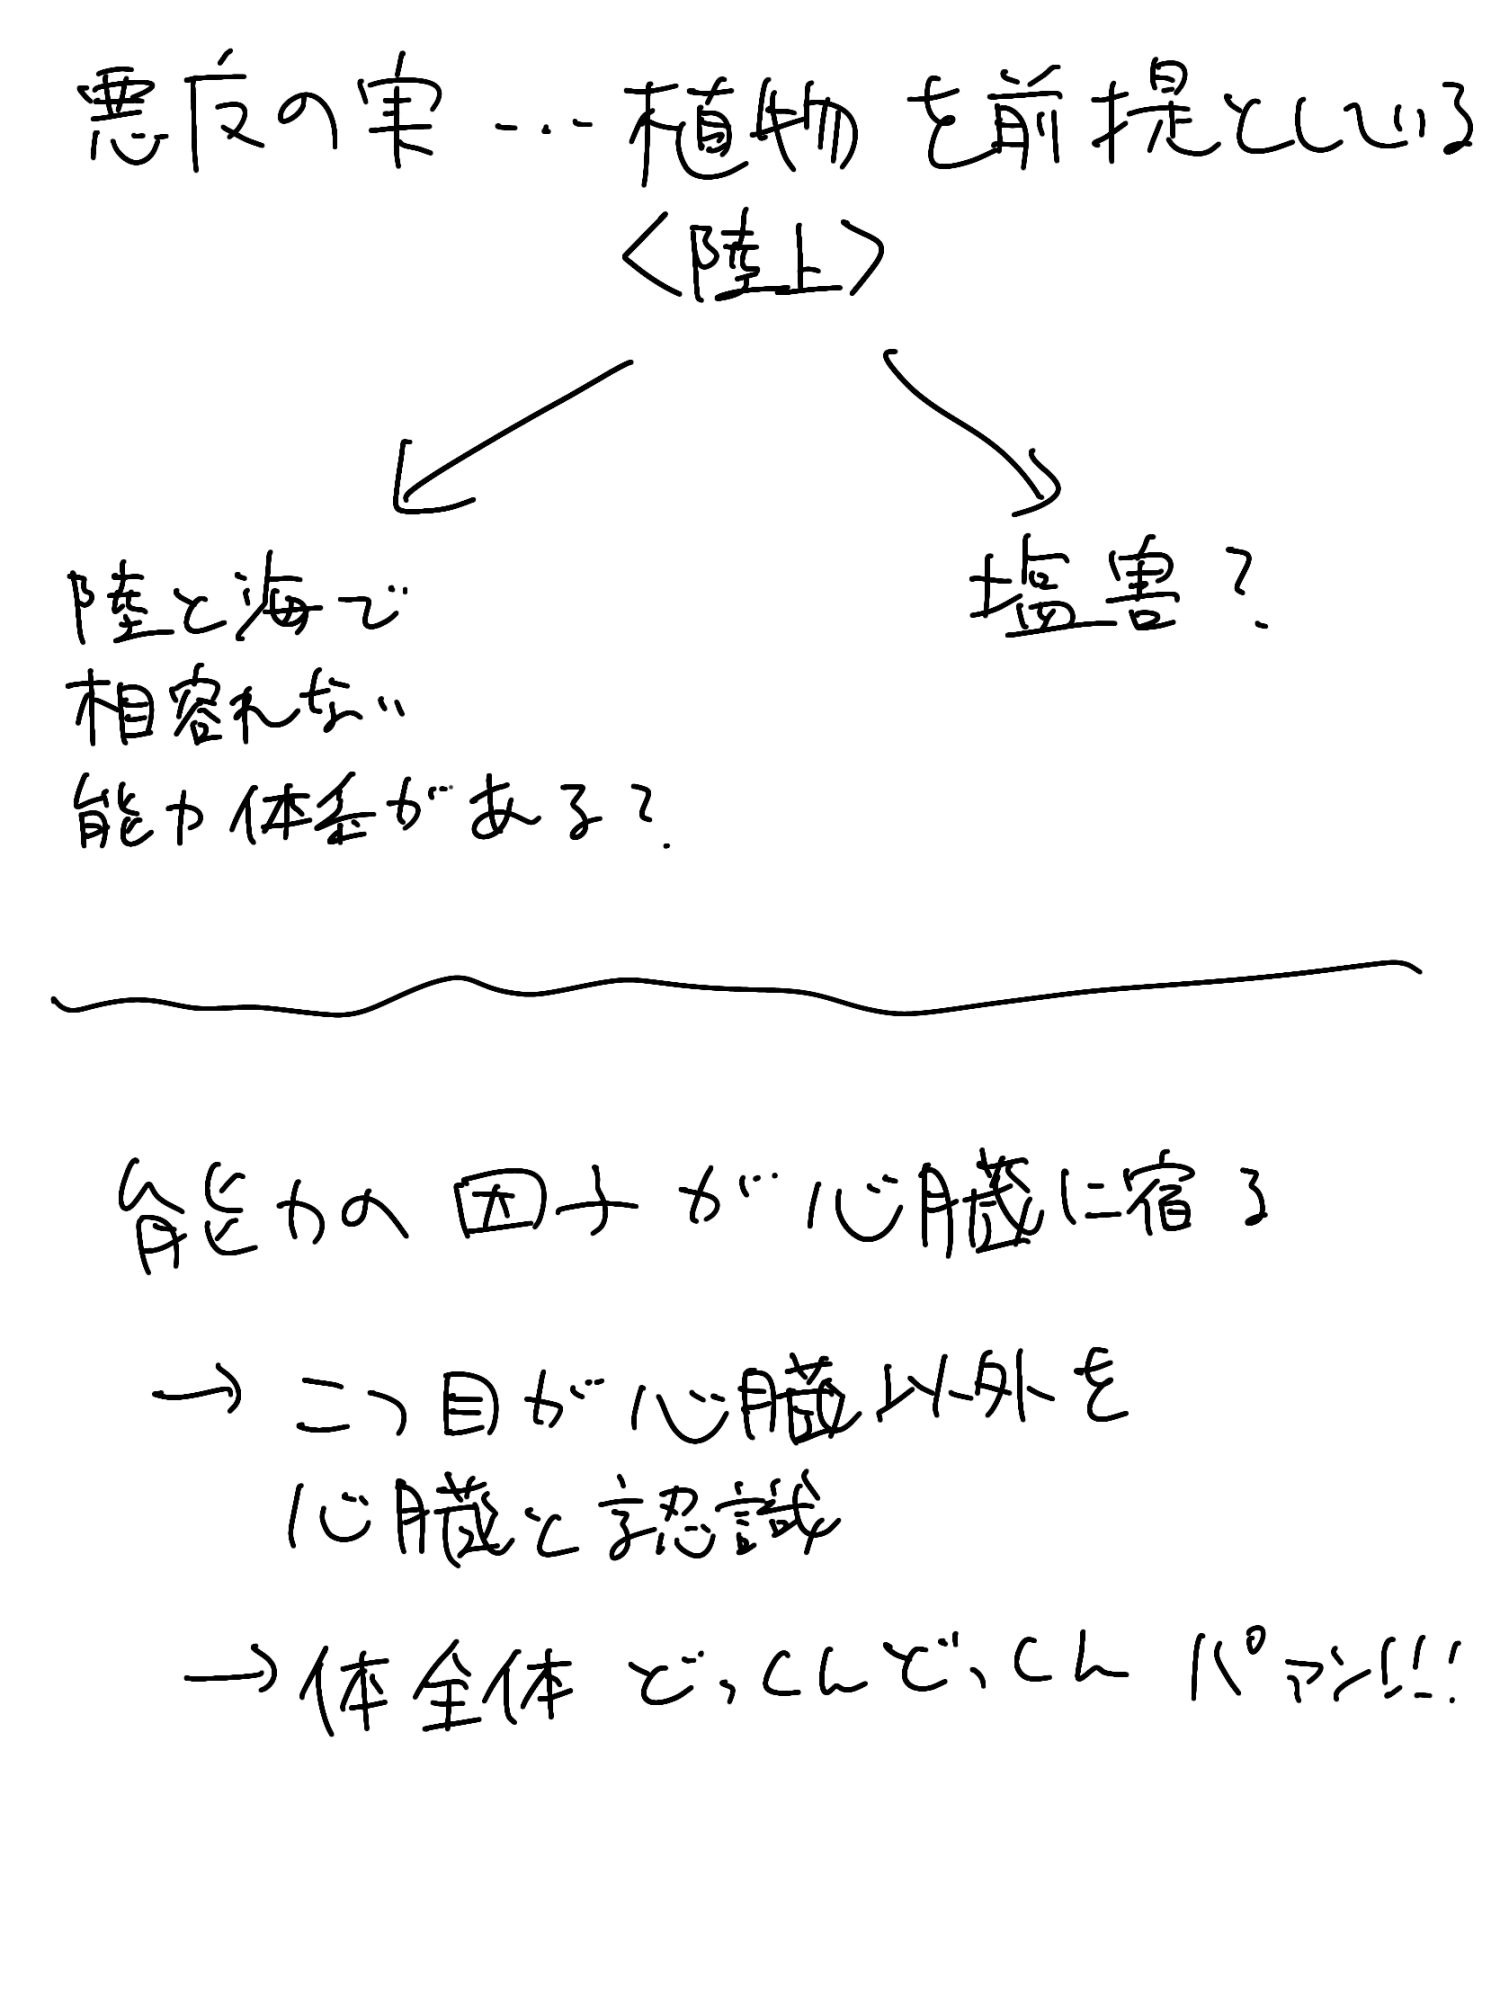 悪魔の実…植物を前提としている
<陸上>
陸と海で
相容れない
能力体系がある?
塩害?
能力の因子が心臓に宿る
→二つ目が心臓以外を
心臓と認識
→体全体どっくんどっくんパァン!!!